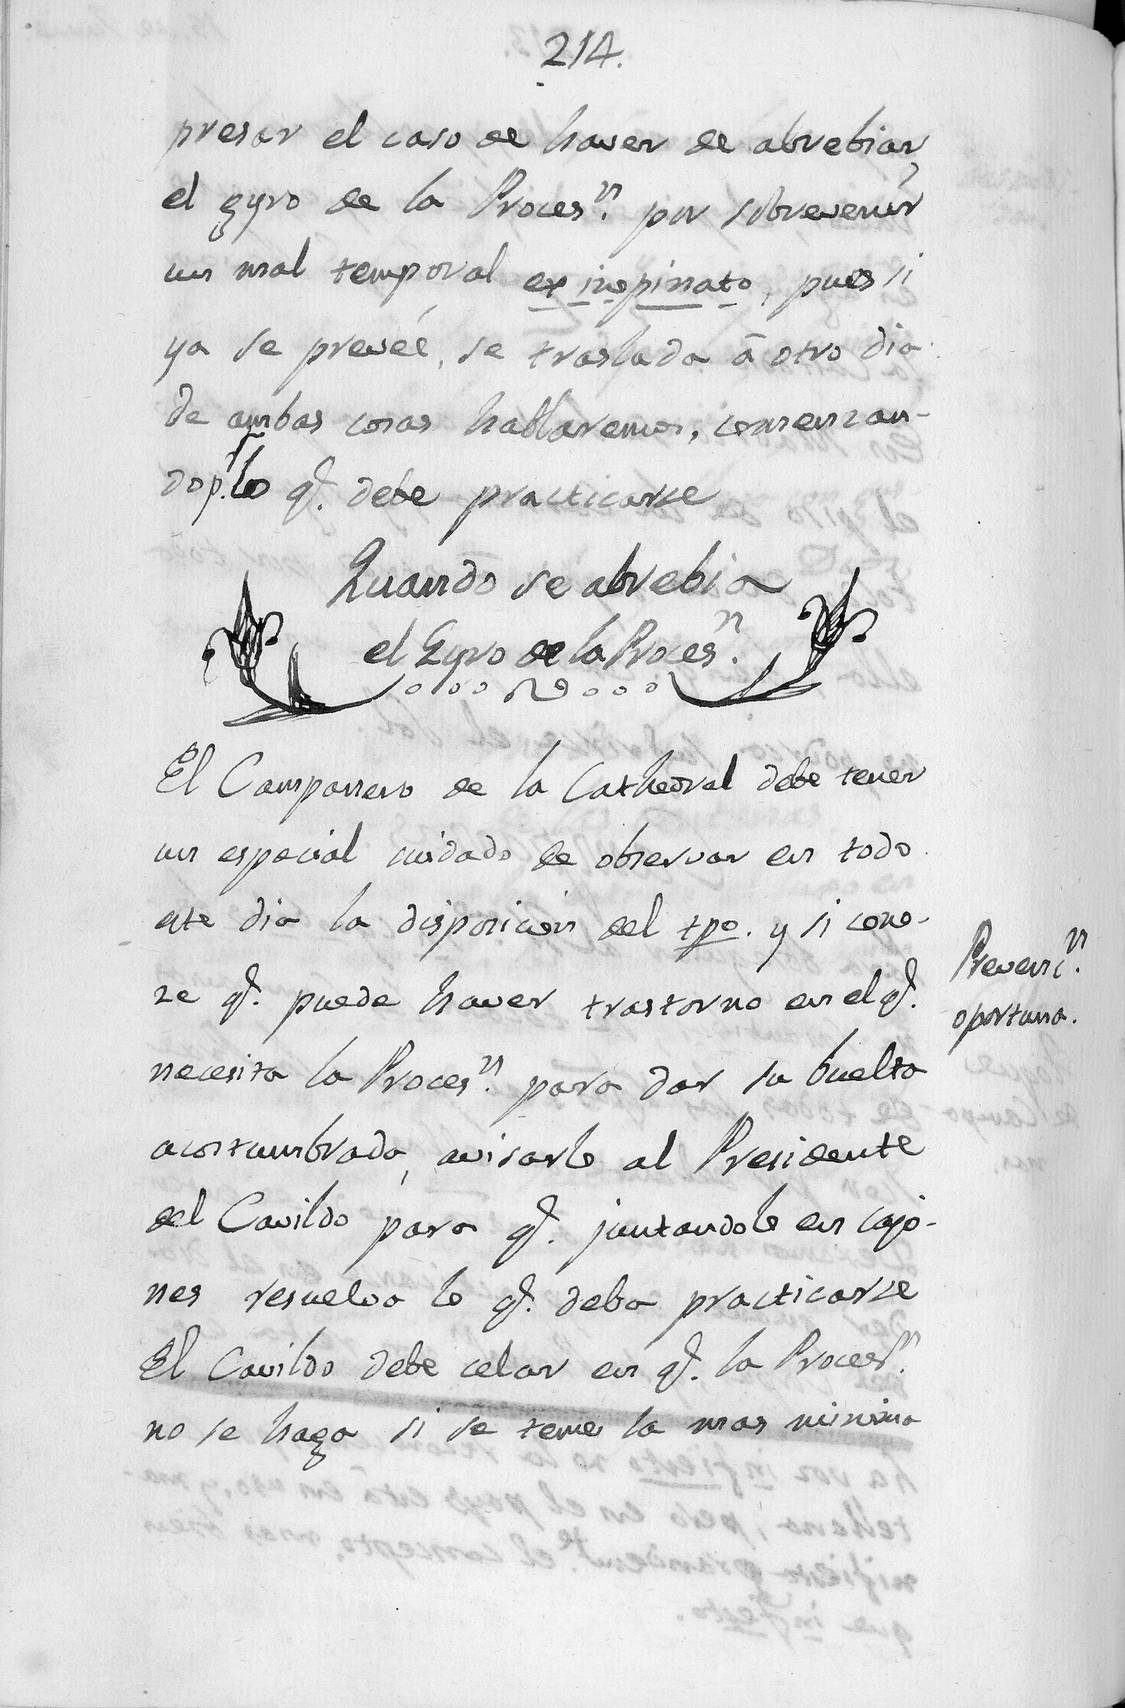 214.
presar el caso de haver de abrebiar,
el gyro de la Proces.ⁿ por sobrevenir
un mal temporal ex inopinato, pues si
ya se preveé, se traslada â otro dia
de ambas cosas hablaremos, comenzan-
do p.ʳ lo q.ᵉ debe practicarse
Quando se abrebia
el Gyro de la Proces.ⁿ
El Campanero de la Cathedral debe tener
un especial cuidado de observar en todo
este dia la disposicion del tpo. y si cono-
ze q.ᵉ puede haver trastorno en el q.ᵉ
necesita la Proces.ⁿ para dar su buelta
acostumbrada, avisarlo al Presidente
del Cavildo para q.ᵉ juntandolo en cajo-
nes resuelva lo q.ᵉ deba practicarse
El Cavildo debe celar en q.ᵉ la Proces.ⁿ
no se haga si se teme la mas minima
Prevenc.ⁿ
oportuna.